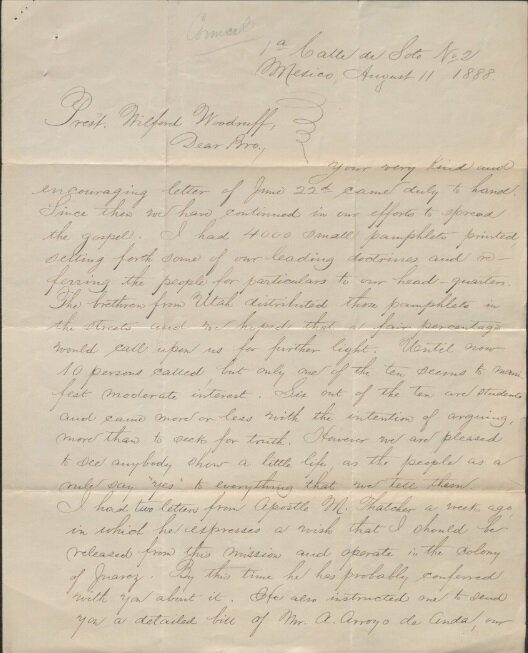 1ª Calle de Soto No 2
Mexico, August 11 1888.
Prest. Wilford Woodruff,
Dear Bro.,
Your very kind and
encouraging letter of June 22d came duly to hand.
Since then we have continued in our efforts to spread
the gospel. I had 4000 small pamphlets printed
setting forth some of our leading doctrines and re-
ferring the people for particulars to our head-quarters.
The brethren from Utah distributed those pamphlets in
the streets and we hoped that a fair percentage
would call upon us for further light. Until now
10 persons called but only one of the ten seems to mani
fest moderate interest. Six out of the ten are students
and came more or less with the intention of arguing,
more than to seek for truth. However we are pleased
to see anybody show a little life, as the people as a
rule say "yes" to everything that we tell them.
I had two letters from Apostle M. Thatcher a week ago,
in which he expresses a wish that I should be
released from this mission and operate in the colony
of Juarez. By this time he has probably conferred
with you about it. He also instructed me to send
you a detailed bill of Mr. A. Arroyo de Anda, our